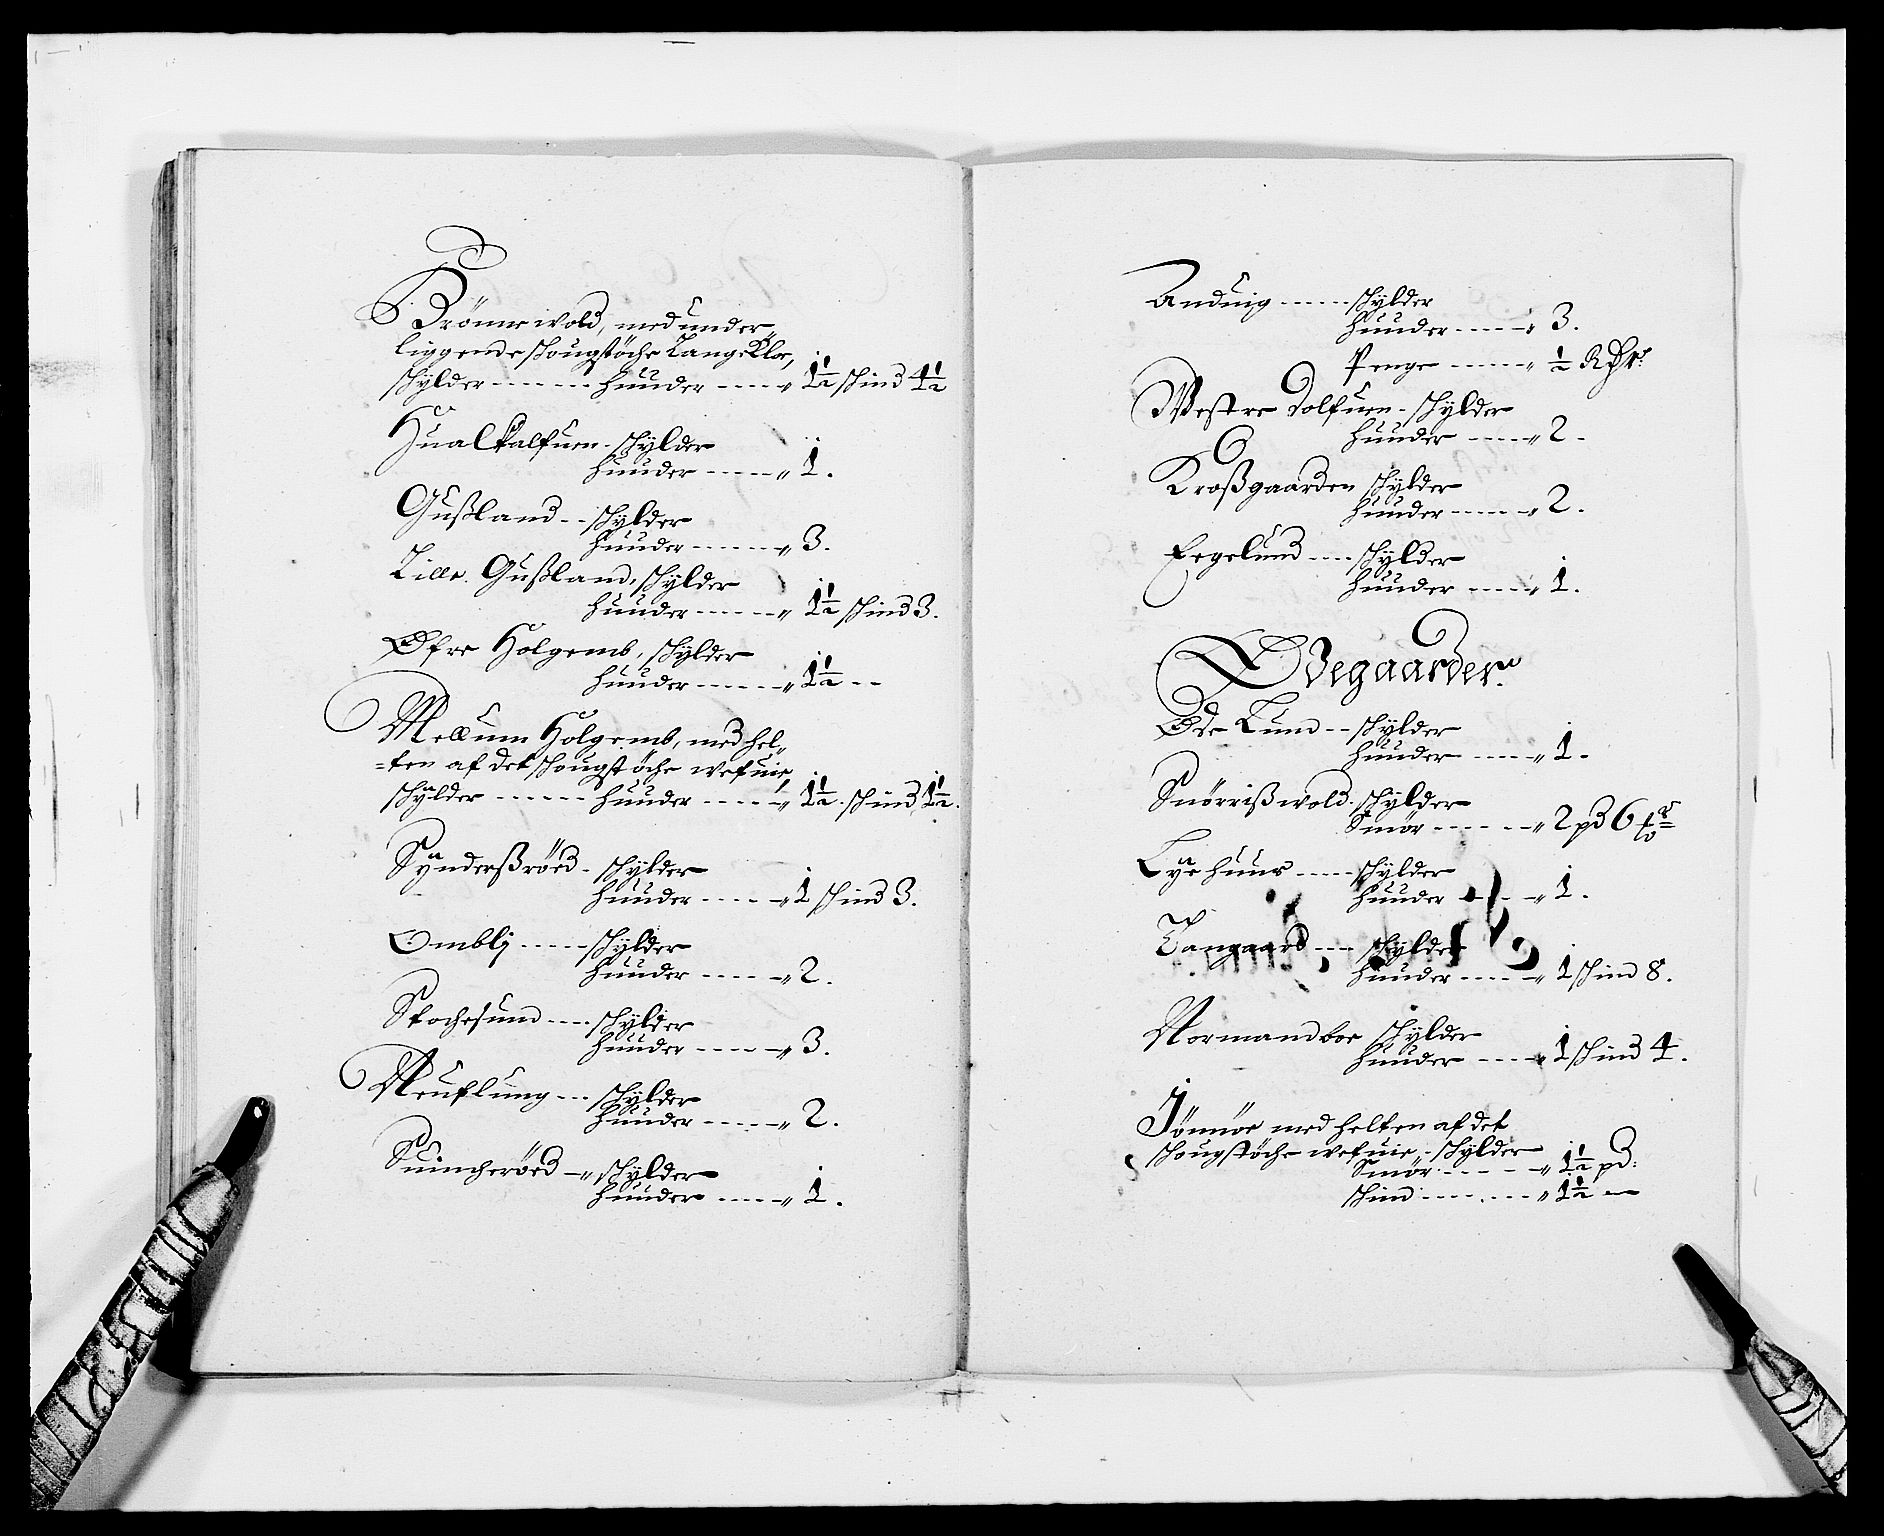 Brönnewold, med under„
liggende schougstöche Langekloe,
schÿlder ------ huuder ---- „ 1½ schind 4½
Hualkalfuen - schÿlder
huuder ---- „ 1.
Gußland -- schÿlder
huuder ----- „ 3.
Lille Gußland, schÿlder
huuder ----- „ 1½ schind 3.
Øfre Holgemb, schÿlder
huuder ----- „ 1½ --
Mellum Holgemb, med hel„
=ten af det schougstöche wefuie,
schÿlder ------ huuder ---- „ 1½. schind 1½.
Sÿnderßröed - schÿlder
huuder ---- „ 1 schind 3.
Omblj ---- schÿlder
huuder ---- „ 2.
Stochesund --- schÿlder
huuder ---- „ 3.
Neuflung --- schÿlder
huuder ---- „ 2.
Suincheröed -„ schÿlder
huuder ---- „ 1.
Anduig ----- schÿlder
huuder ---- „ 3.
Penge ---- „ ½ Rdr.
Westre Dolfuen - schÿlder
huuder ---- „ 2 -
Kroßgaarden schÿlder
huuder ---- „ 2.
Eegelund --- schÿlder
huuder ---- „ 1.
Ødegaarder.
Øde Lund -- schÿlder
huuder ---- „ 1 -
Snörrißwold - schÿlder
Smör ----- „ 2 pd 6
Lÿe huus ---- schÿlder
huuder ---- „ 1.
Tangaard --- schÿlder
huuder ---- „ 1 schind 8.
Normandboe schÿlder
huuder ---- „ 1 schind 4.
Jönnöe med helten af det
schougstöche wefuie, - schÿlder
Smör ---- „ 1½ pd:
schind ----- „ 1½ -